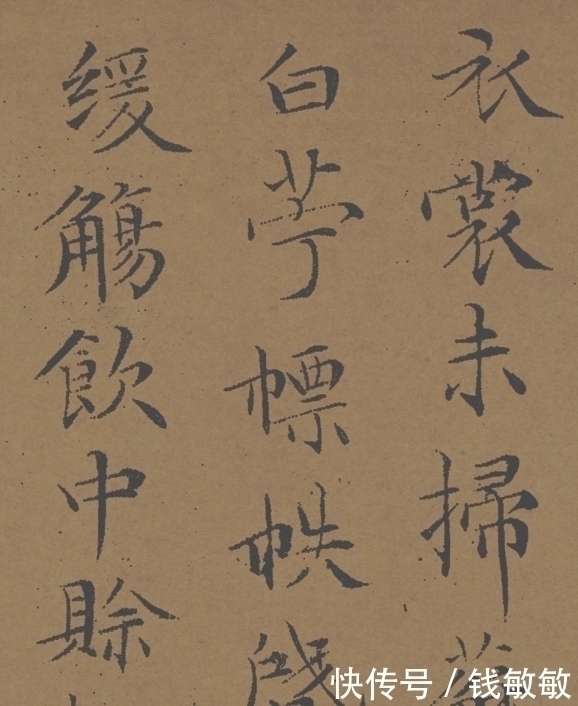 衣裳未掃
白苧幖帙
緩觴飲中賒
快传号 / 钱敏敏